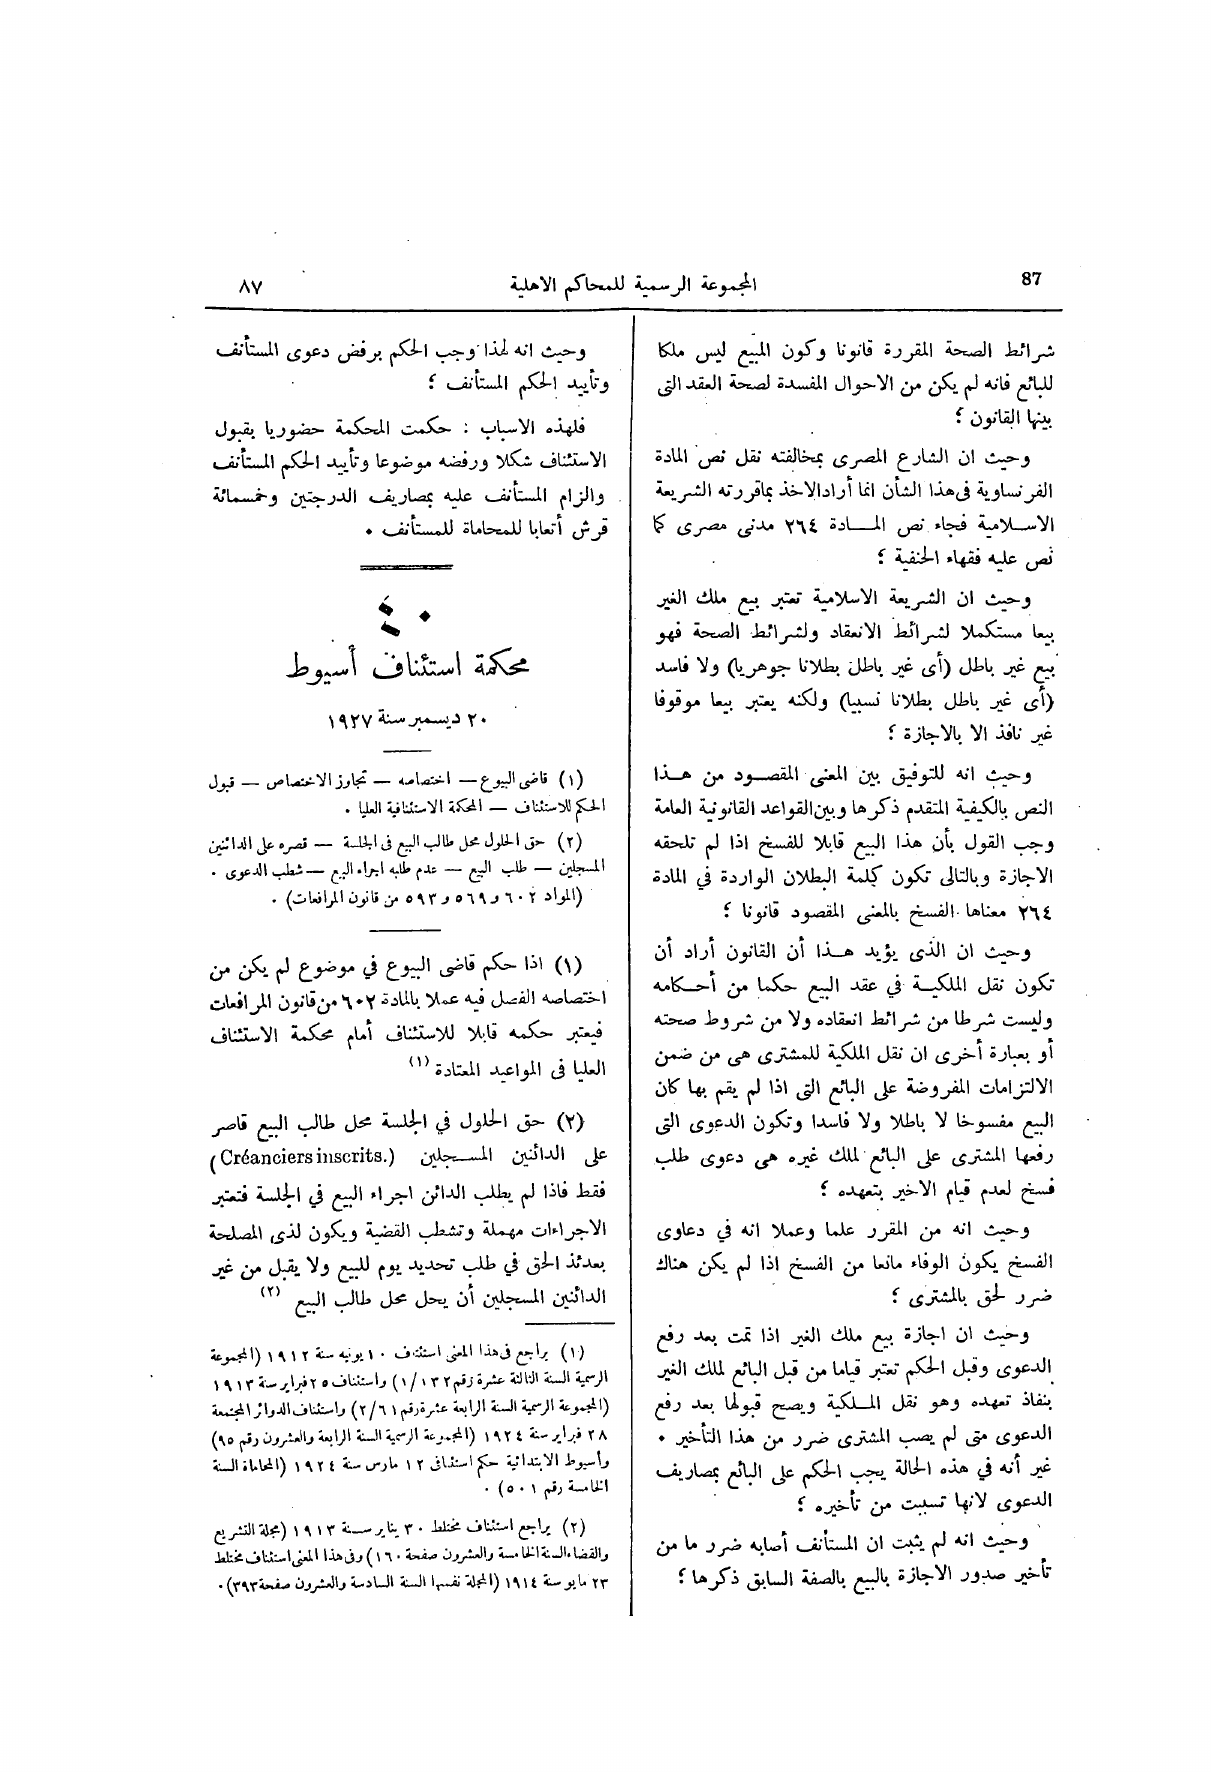 87
المجموعة الرسمية للمحاكم الاهلية
٨٧
شرائط الصحة المقررة قانونا وكون المبيع ليس ملكا
للبائع فانه لم يكن من الاحوال المفسدة لصحة العقد التى
بينها القانون ؛
وحيث ان الشارع المصرى بمخالفته نقل نص المادة
الفرنساوية فى هذا الشأن انما أراد الاخذ بما قررته الشريعة
الاسلامية فجاء نص المادة ٢٦٤ مدنى مصرى كما
نص عليه فقهاء الحنفية ؛
وحيث ان الشريعة الاسلامية تعتبر بيع ملك الغير
بيعا مستكملا لشرائط الانعقاد ولشرائط الصحة فهو
بيع غير باطل (أى غير باطل بطلانا جوهريا) ولا فاسد
(أى غير باطل بطلانا نسبيا) ولكنه يعتبر بيعا موقوفا
غير نافذ الا بالاجازة ؛
وحيث انه للتوفيق بين المعنى المقصود من هذا
النص بالكيفية المتقدم ذكرها وبين القواعد القانونية العامة
وجب القول بأن هذا البيع قابلا للفسخ اذا لم تلحقه
الاجازة وبالتالى تكون كلمة البطلان الواردة في المادة
٢٦٤ معناها الفسخ بالمعنى المقصود قانونا ؛
وحيث ان الذى يؤيد هذا أن القانون أراد أن
تكون نقل الملكية في عقد البيع حكما من أحكامه
وليست شرطا من شرائط انعقاده ولا من شروط صحته
أو بعبارة أخرى ان نقل الملكية للمشترى هى من ضمن
الالتزامات المفروضة على البائع التى اذا لم يقم بها كان
البيع مفسوخا لا باطلا ولا فاسدا وتكون الدعوى التى
رفعها المشترى على البائع لملك غيره هى دعوى طلب
فسخ لعدم قيام الاخير بتعهده ؛
وحيث انه من المقرر علما وعملا انه في دعاوى
الفسخ يكون الوفاء مانعا من الفسخ اذا لم يكن هناك
ضرر لحق بالمشترى ؛
وحيث ان اجازة بيع ملك الغير اذا تمت بعد رفع
الدعوى وقبل الحكم تعتبر قياما من قبل البائع لملك الغير
بنفاذ تعهده وهو نقل الملكية ويصح قبولها بعد رفع
الدعوى متى لم يصب المشترى ضرر من هذا التأخير .
غير أنه في هذه الحالة يجب الحكم على البائع بمصاريف
الدعوى لانها تسببت من تأخيره ؛
وحيث انه لم يثبت ان المستأنف أصابه ضرر ما من
تأخير صدور الاجازة بالبيع بالصفة السابق ذكرها ؛
وحيث انه لهذا وجب الحكم برفض دعوى المستأنف
وتأييد الحكم المستأنف ؛
فلهذه الاسباب : حكمت المحكمة حضوريا بقبول
الاستئناف شكلا ورفضه موضوعا وتأييد الحكم المستأنف
والزام المستأنف عليه بمصاريف الدرجتين وخمسمائة
قرش أتعابا للمحاماة للمستأنف .
٤٠
محكمة استئناف أسيوط
٢٠ ديسمبر سنة ١٩٢٧
(١) قاضى البيوع — اختصاصه — تجاوز الاختصاص — قبول
الحكم للاستئناف — المحكمة الاستئنافية العليا .
(٢) حق الحلول محل طالب البيع فى الجلسة — قصره على الدائنين
المسجلين — طلب البيع — عدم طلبه اجراء البيع — شطب الدعوى .
(المواد ٦٠٢ و٥٦٩ و٥٩٣ من قانون المرافعات) .
(١) اذا حكم قاضى البيوع في موضوع لم يكن من
اختصاصه الفصل فيه عملا بالمادة ٦٠٢ من قانون المرافعات
فيعتبر حكمه قابلا للاستئناف أمام محكمة الاستئناف
العليا فى المواعيد المعتادة (١)
(٢) حق الحلول في الجلسة محل طالب البيع قاصر
على الدائنين المسجلين (Créanciers inscrits.)
فقط فاذا لم يطلب الدائن اجراء البيع في الجلسة فتعتبر
الاجراءات مهملة وتشطب القضية ويكون لذى المصلحة
بعدئذ الحق في طلب تحديد يوم للبيع ولا يقبل من غير
الدائنين المسجلين أن يحل محل طالب البيع (٢)
(١) يراجع فى هذا المعنى استئناف ١٠ يونيه سنة ١٩١٢ (المجموعة
الرسمية السنة الثالثة عشرة رقم ١/١٣٢) واستئناف ٢٥ فبراير سنة ١٩١٣
(المجموعة الرسمية السنة الرابعة عشرة رقم ٢/٦١) واستئناف الدوائر المجتمعة
٢٨ فبراير سنة ١٩٢٤ (المجموعة الرسمية السنة الرابعة والعشرون رقم ٩٥)
وأسيوط الابتدائية حكم استئنافى ١٢ مارس سنة ١٩٢٤ (المحاماة السنة
الخامسة رقم ٥٠١) .
(٢) يراجع استئناف مختلط ٣٠ يناير سنة ١٩١٣ (مجلة التشريع
والقضاء السنة الخامسة والعشرون صفحة ١٦٠) وفى هذا المعنى استئناف مختلط
٢٣ مايو سنة ١٩١٤ (المجلة نفسها السنة السادسة والعشرون صفحة ٣٩٣) .